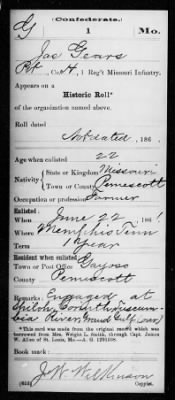 (Confederate.)
G 1 Mo.
Jas Gears
Pvt, Co. H, 1 Reg't Missouri Infantry.
Appears on a
Historic Roll*
of the organization named above.
Roll dated
Not dated, 186 .
Age when enlisted 22
Nativity State or Kingdom Missouri
Town or County Pemescott
Occupation or profession Farmer
Enlisted:
When June 22, 186 !
Where Memphis Tenn
1 Year
Resident when enlisted:
Town or Post Office Gayoso
County Pemescott
Remarks: Engaged at
Shiloh, Corinth, Tuscum-
bia River, Grand Gulf
*This card was made from the original record which was
borrowed from Mrs. Wright L. Smith, through Capt. James
W. Allen of St. Louis, Mo.
Book mark:
J. W. Wilkinson
Copyist.